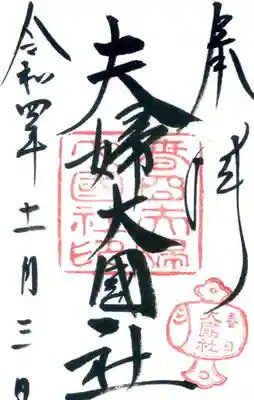 奉拝
夫婦大國社
令和四年十一月三日
春日
大國社